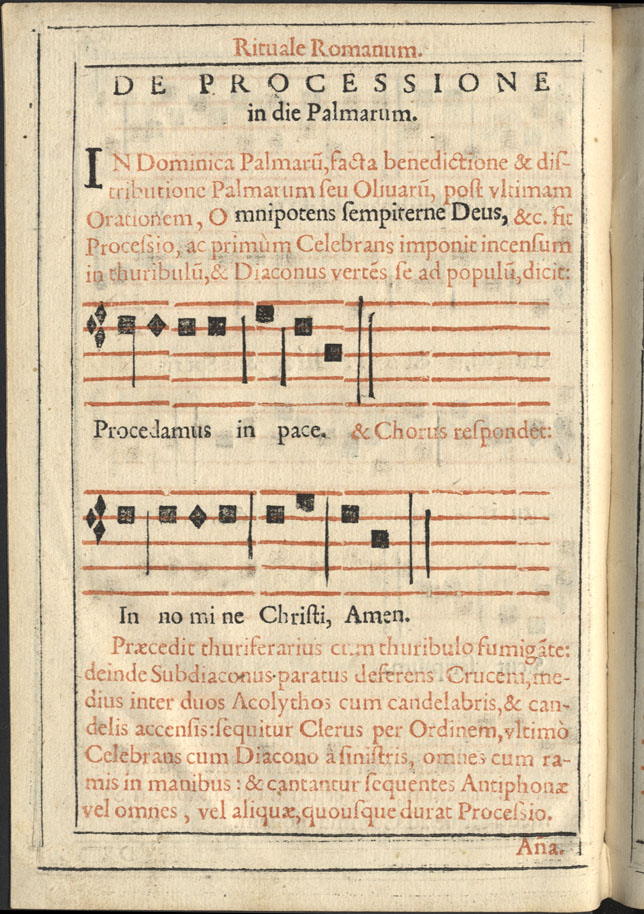 Rituale Romanum.
DE PROCESSIONE
in die Palmarum.
IN Dominica Palmarū, facta benedictione & diſ-
tributione Palmarum ſeu Oliuarū, poſt vltimam
Orationem, O mnipotens ſempiterne Deus, &c. fit
Proceſsio, ac primùm Celebrans imponit incenſum
in thuribulū, & Diaconus vertēs ſe ad populū, dicit:
Procedamus in pace. & Chorus reſpondet:
In no mi ne Chriſti, Amen.
Præcedit thuriferarius cum thuribulo fumigāte:
deinde Subdiaconus paratus deferens Crucem, me-
dius inter duos Acolythos cum candelabris, & can-
delis accenſis: ſequitur Clerus per Ordinem, vltimò
Celebrans cum Diacono à ſiniſtris, omnes cum ra-
mis in manibus : & cantantur ſequentes Antiphonæ
vel omnes, vel aliquæ, quouſque durat Proceſsio.
Aña.